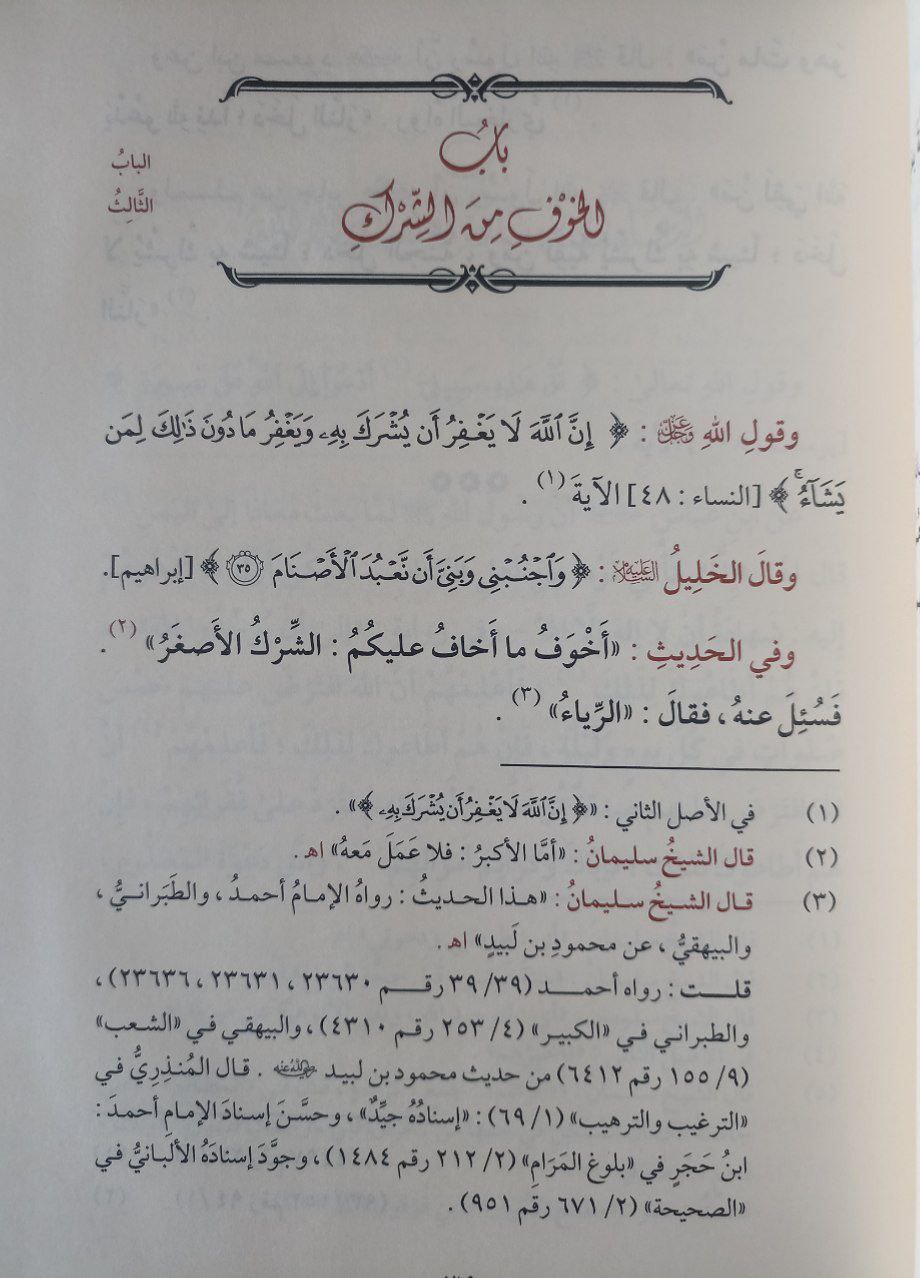 بابُ
الخوْفِ مِنَ الشِّرْكِ
البابُ
الثَّالِثُ
وقولِ اللهِ عَزَّ وَجَلَّ : ﴿ إِنَّ ٱللَّهَ لَا يَغْفِرُ أَن يُشْرَكَ بِهِۦ وَيَغْفِرُ مَا دُونَ ذَٰلِكَ لِمَن
يَشَآءُ ۚ ﴾ [النساء : ٤٨] الآيةَ (١) .
وقالَ الخَلِيلُ عَلَيْهِ السَّلَامُ : ﴿ وَٱجْنُبْنِى وَبَنِىَّ أَن نَّعْبُدَ ٱلْأَصْنَامَ ٣٥ ﴾ [إبراهيم].
وفي الحَدِيثِ : «أَخْوَفُ ما أَخافُ عليكُمُ : الشِّرْكُ الأَصغَرُ» (٢) .
فَسُئِلَ عنهُ ، فقالَ : «الرِّياءُ» (٣) .
(١) في الأصل الثاني : «﴿ إِنَّ ٱللَّهَ لَا يَغْفِرُ أَن يُشْرَكَ بِهِۦ ﴾» .
(٢) قال الشيخُ سليمانُ : «أمَّا الأكبرُ : فلا عَمَلَ مَعهُ» اهـ .
(٣) قال الشيخُ سليمانُ : «هذا الحديثُ : رواهُ الإمامُ أحمدُ ، والطَبَرانيُّ ،
والبيهقيُّ ، عن محمودِ بن لَبيدٍ» اهـ .
قلت : رواه أحمد (٣٩/ ٣٩ رقم ٢٣٦٣٠ ، ٢٣٦٣١ ، ٢٣٦٣٦) ،
والطبراني في «الكبير» (٤/ ٢٥٣ رقم ٤٣١٠) ، والبيهقي في «الشعب»
(٩/ ١٥٥ رقم ٦٤١٢) من حديث محمود بن لبيد رضي الله عنه . قال المُنذِرِيُّ في
«الترغيب والترهيب» (١/ ٦٩) : «إسنادُهُ جيِّدٌ» ، وحسَّنَ إسنادَ الإمامِ أحمدَ :
ابنُ حَجَرٍ في «بلوغ المَرَامِ» (٢/ ٢١٢ رقم ١٤٨٤) ، وجوَّدَ إسنادَهُ الألبانيُّ في
«الصحيحة» (٢/ ٦٧١ رقم ٩٥١) .